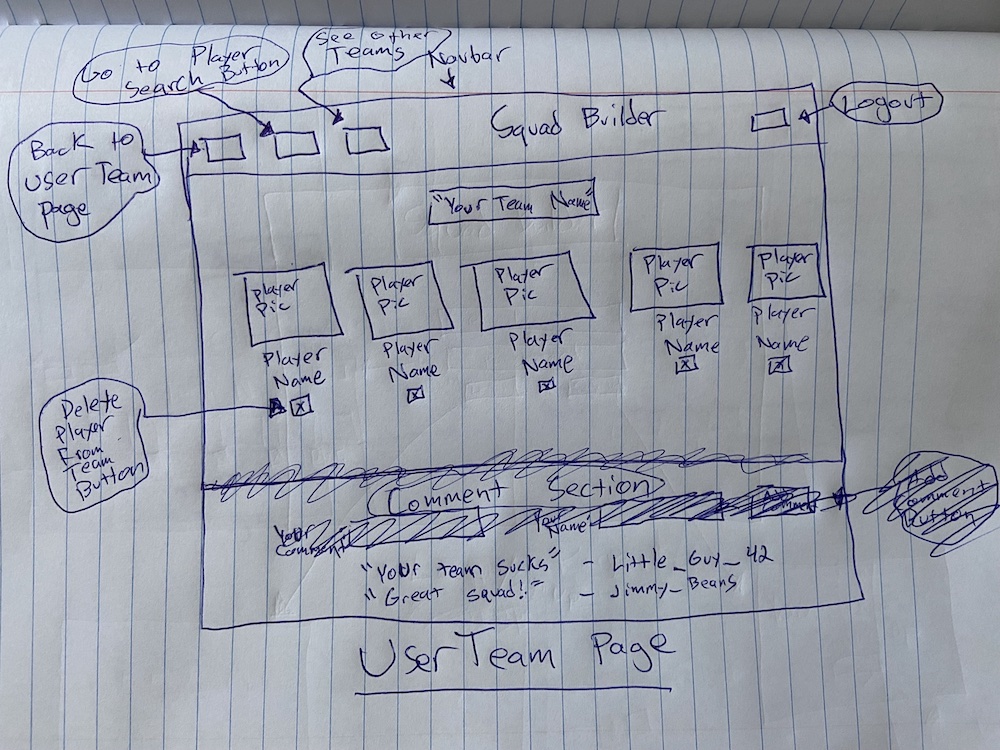 Go to Player
Search Button
See other
Teams
Navbar
Logout
Squad Builder
Back to
User Team
Page
"Your Team Name"
Player
Pic
Player
Pic
Player
Pic
Player
Pic
Player
Pic
Player
Name
X
Player
Name
X
Player
Name
X
Player
Name
X
Player
Name
X
Delete
Player
From
Team
Button
Comment Section
Add
Comment
Button
Your
Comment
Your
Name
Add
Comment
"Your team Sucks" - Little_Guy_42
"Great Squad!" - Jimmy_Beans
User Team Page